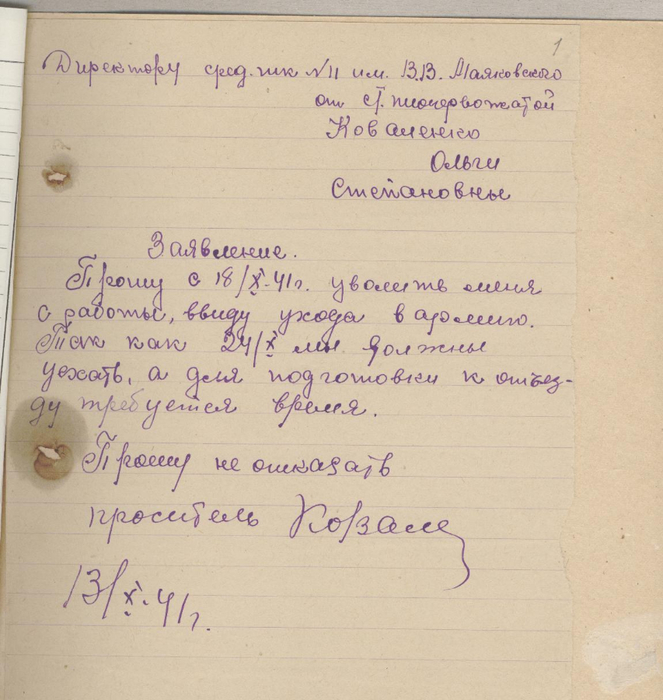 1
Директору сред. шк №11 им. В.В. Маяковского
от ст. пионервожатой
Коваленко
Ольги
Степановны
Заявление.
Прошу с 18/X-41г. уволить меня
с работы, ввиду ухода в армию.
Так как 24/X мы должны
уехать, а для подготовки к отъез-
ду требуется время.
Прошу не отказать
проситель Ковале
13/X-41г.